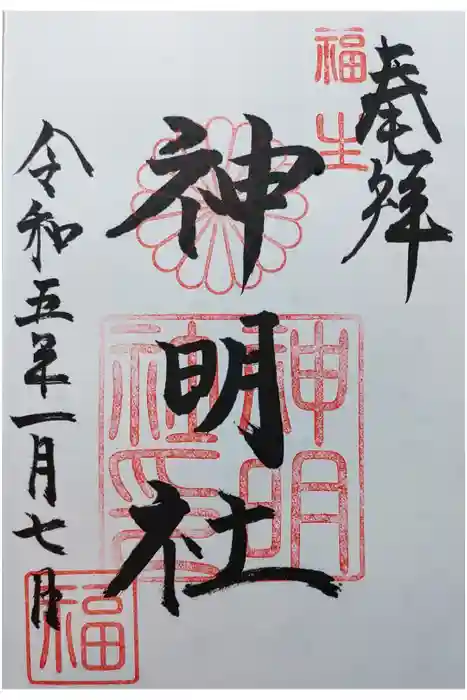 奉拝
福生
神明社
神明
社之印
令和五年一月七日
福